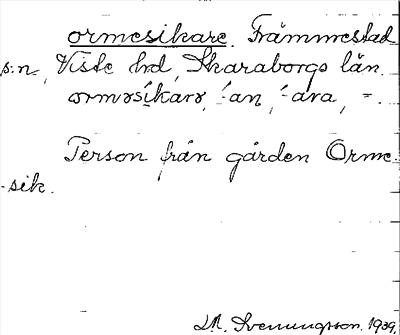 ormesikare. Främmestad
sn, Viste hrd, Skaraborgs län.
ormɘsíkarɘ, ´-an, ´-ara, =.
Person från gården Orme-
sik.
Sveningsson. 1939.